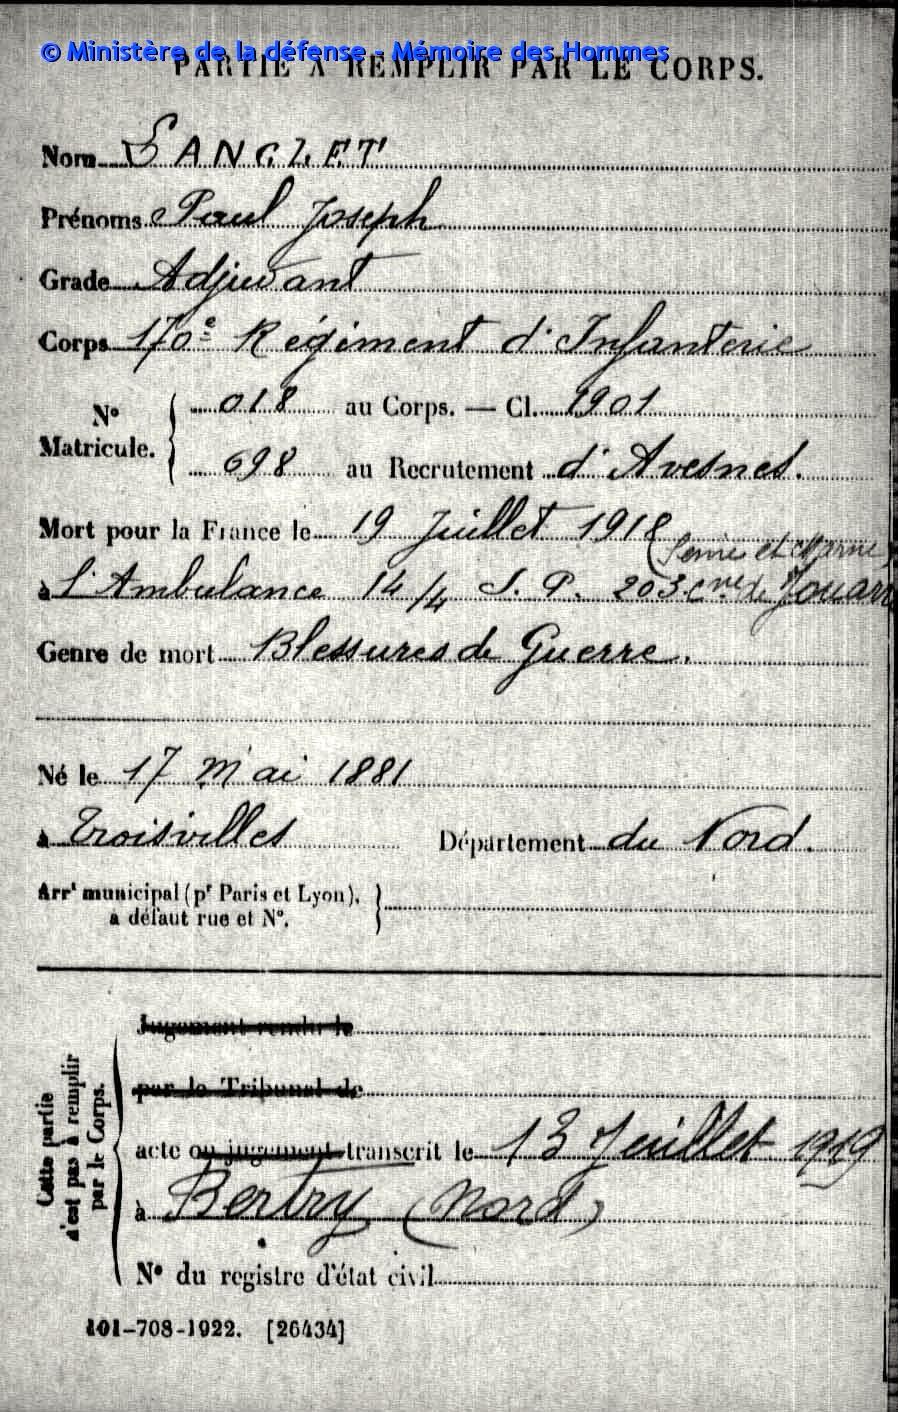 © Ministère de la défense - Mémoire des Hommes
PARTIE À REMPLIR PAR LE CORPS.
Nom SANGLET
Prénoms Paul Joseph
Grade Adjudant
Corps 170e Régiment d'Infanterie
N° Matricule. { 018 au Corps. — Cl. 1901
698 au Recrutement d'Avesnes.
Mort pour la France le 19 Juillet 1918
(Seine et Marne)
à l'Ambulance 14/4 S. P. 203 cne de Jouarre
Genre de mort Blessures de Guerre.
Né le 17 Mai 1881
à Troisvilles Département du Nord.
Arrt municipal (pr Paris et Lyon),
à défaut rue et N°.
Cette partie n'est pas à remplir par le Corps.
Jugement rendu le
par le Tribunal de
acte ou jugement transcrit le 13 Juillet 1919
à Bertry (Nord)
N° du registre d'état civil
101-708-1922. [26434]